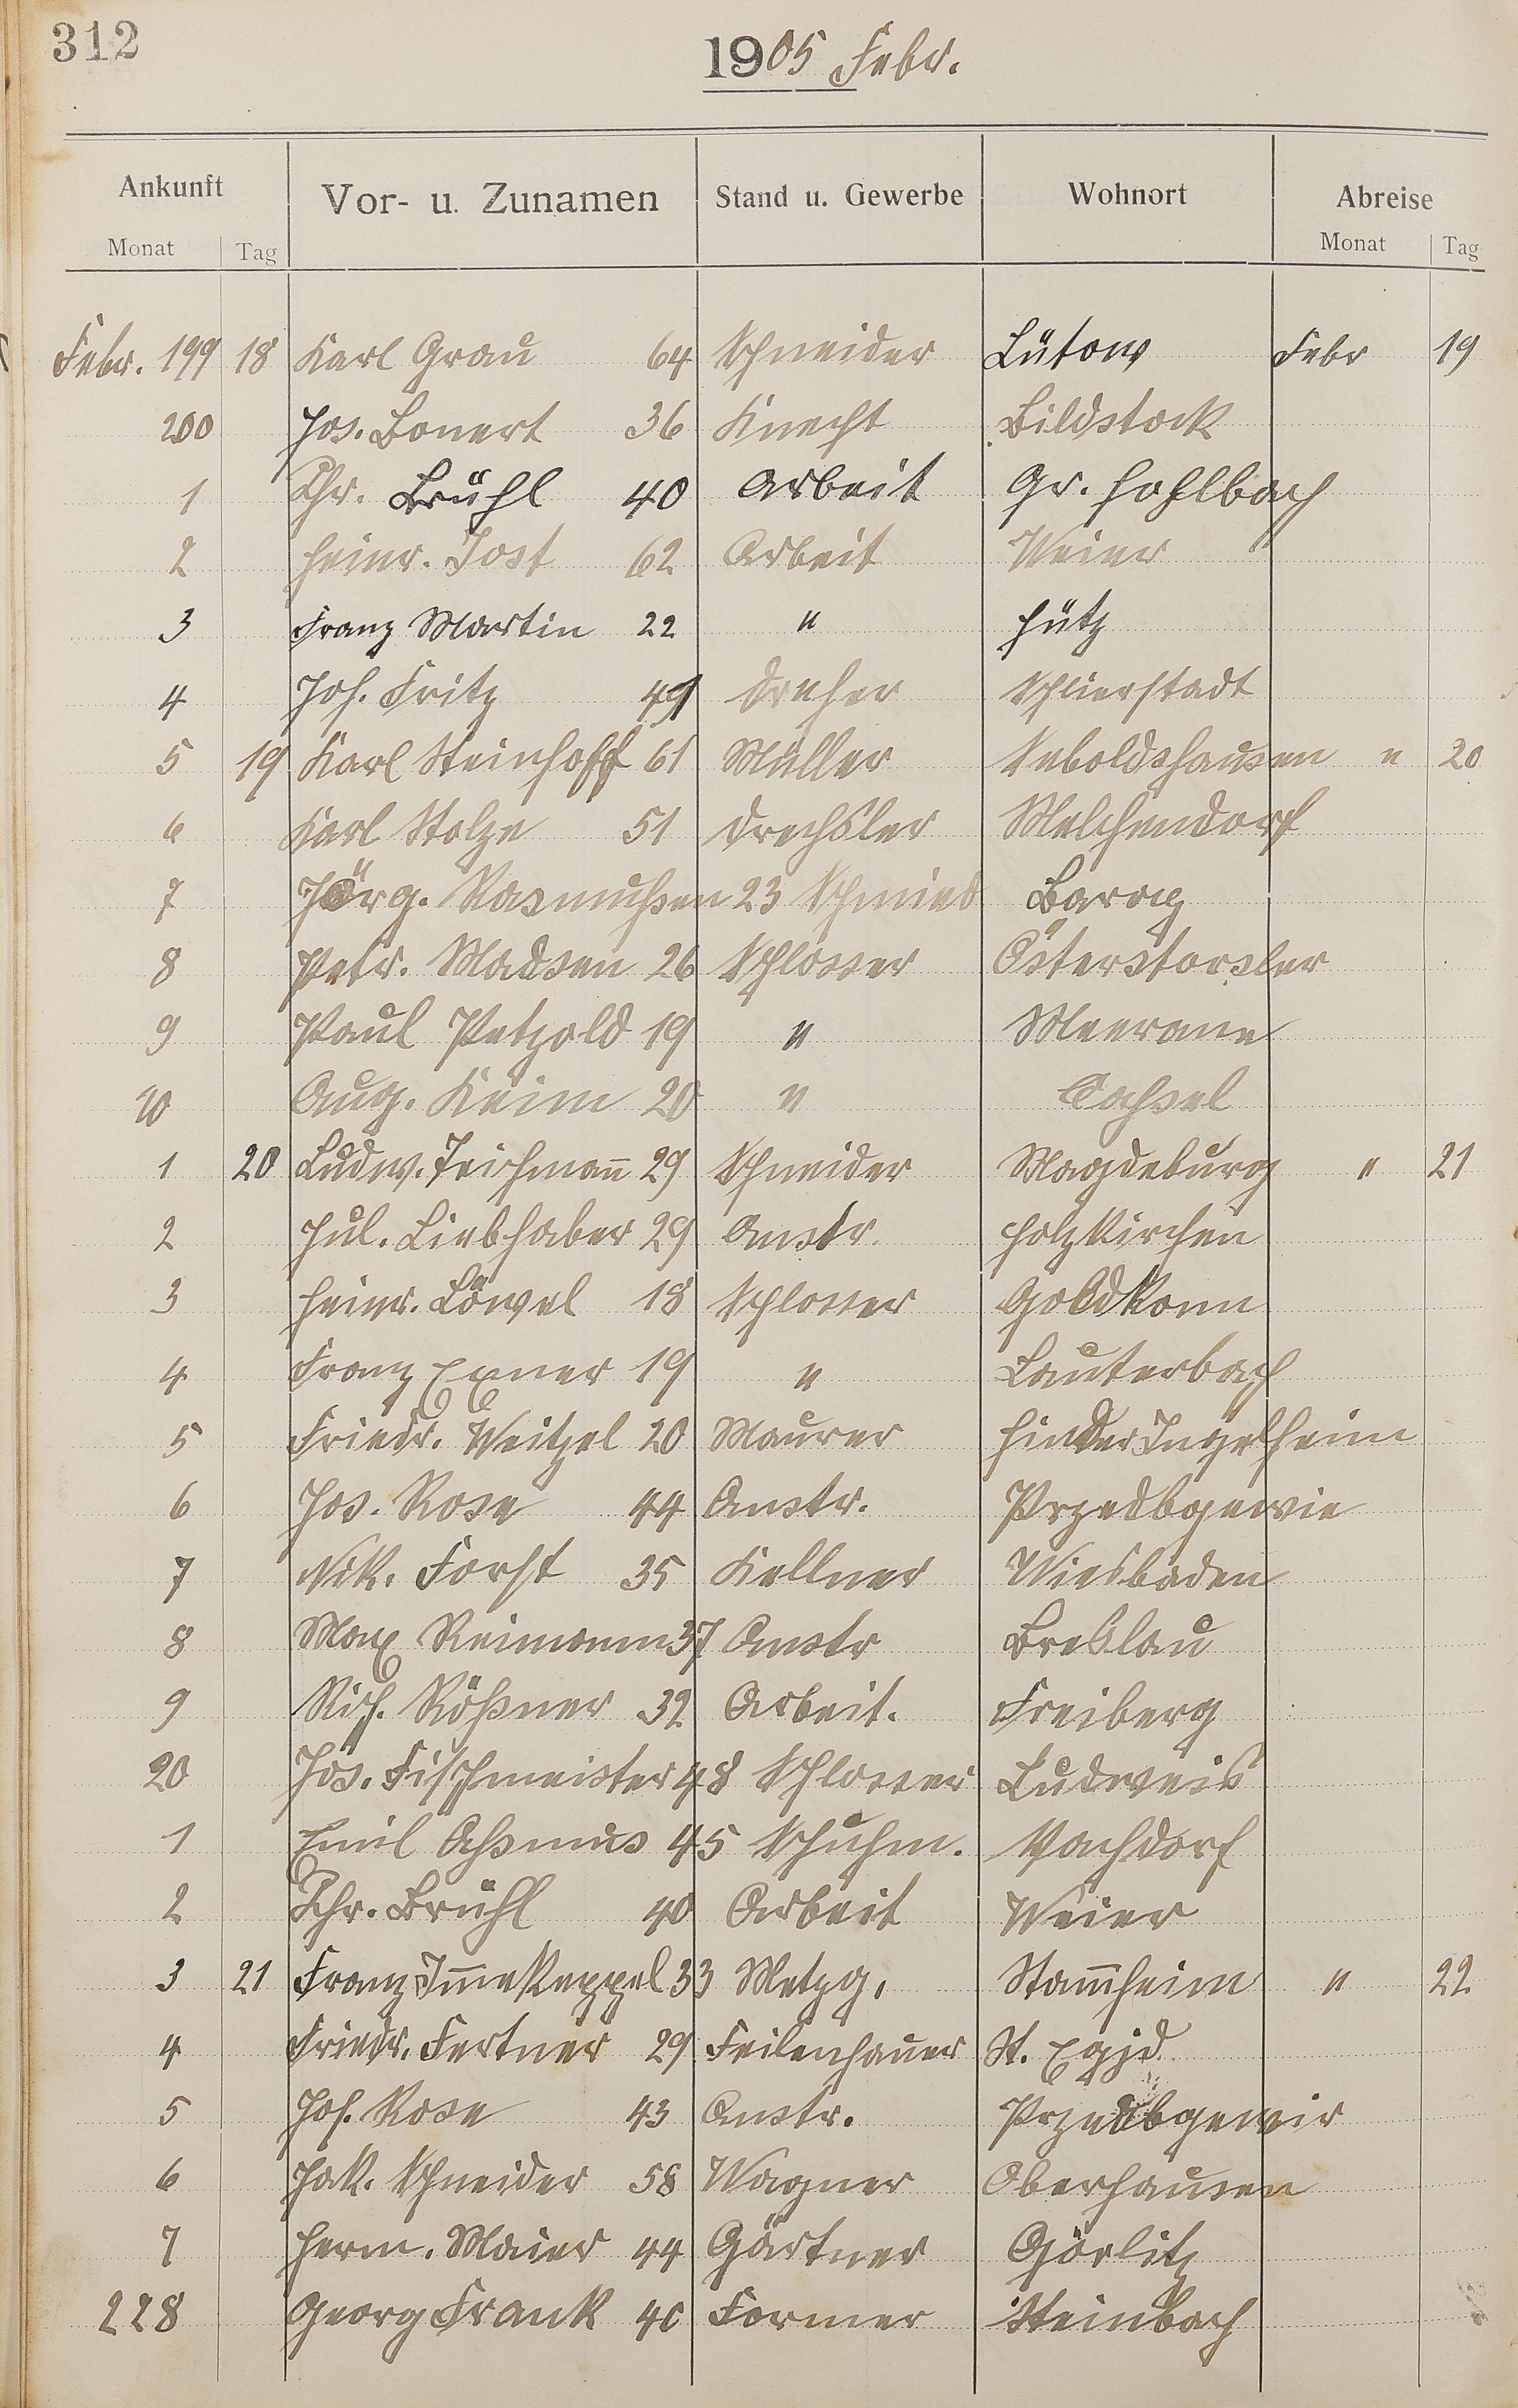 312
1905 Febr.
Ankunft Vor- u. Zunamen Stand u. Gewerbe Wohnort Abreise
Monat Tag Monat Tag
Febr. 199 18 Karl Grau 64 Schneider Lütow Febr 19
200 Jos. Bonert 36 Knecht Bildstock
1 Chr. Brühl 40 Arbeit Gr. Hohlbach
2 Heinr. Jost 62 Arbeit Weier
3 Franz Martin 22 " Hütz
4 Joh. Fritz 49 Dreher Schlierstadt
5 19 Karl Steinhoff 61 Müller Seboldshausen " 20
6 Karl Stolze 51 Drechsler Melchendorf
7 Jörg. Rasmußen 23 Schmied
8 Petr. Madsen 26 Schlosser
9 Paul Petzold 19 " Meerane
10 Aug. Keim 20 " Caßsel
1 20 Ludw. Teichmann 29 Schneider Magdeburg " 21
2 Jul. Liebhaber 29 Anstr. Holzkirchen
3 Heinr. Löwel 18 Schlosser
4 Franz Exner 19 " Lauterbach
5 Friedr. Weitzel 20 Maurer Hinder Ingelheim
6 Jos. Rose 44 Anstr.
7 Nik. Forst 35 Kellner Wiesbaden
8 Max Reimann 37 Anstr Breslau
9 Rich. Rößner 32 Arbeit. Freiberg
20 Jos. Fischmeister 48 Schlosser Ludweis
1 Emil Aßmus 45 Schuhm. Vachdorf
2 Chr. Brühl 40 Arbeit Weier
3 21 Franz Immekeppel 33 Metzg. Stammheim " 22
4 Friedr. Fertner 29 Feilenhauer St. Egid
5 Jos. Rose 43 Anstr.
6 Jak. Schneider 58 Wagner Oberhausen
7 Herm. Maier 44 Gärtner Görlitz
228 Georg Frank 40 Former Steinbach